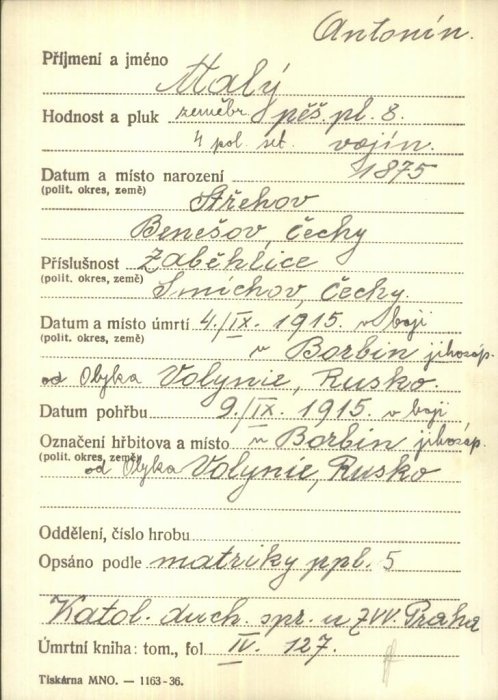 Antonín.
Příjmení a jméno Malý
Hodnost a pluk zeměbr. pěš. pl. 8.
4 pol. set. vojín.
Datum a místo narození 1875
(polit. okres, země) Střehov
Benešov, Čechy
Příslušnost Záběhlice
(polit. okres, země) Smíchov, Čechy.
Datum a místo úmrtí 4./IX. 1915. v boji
(polit. okres, země) u Borbin jihozáp.
od Olyka Volynie, Rusko.
Datum pohřbu 9./IX. 1915. v boji
Označení hřbitova a místo u Borbin jihozáp.
(polit. okres, země) od Olyka Volynie, Rusko
Oddělení, číslo hrobu
Opsáno podle matriky ppl. 5
Katol. duch. spr. u ZVV. Praha
Úmrtní kniha: tom., fol IV. 127.
Tiskárna MNO. — 1163-36.